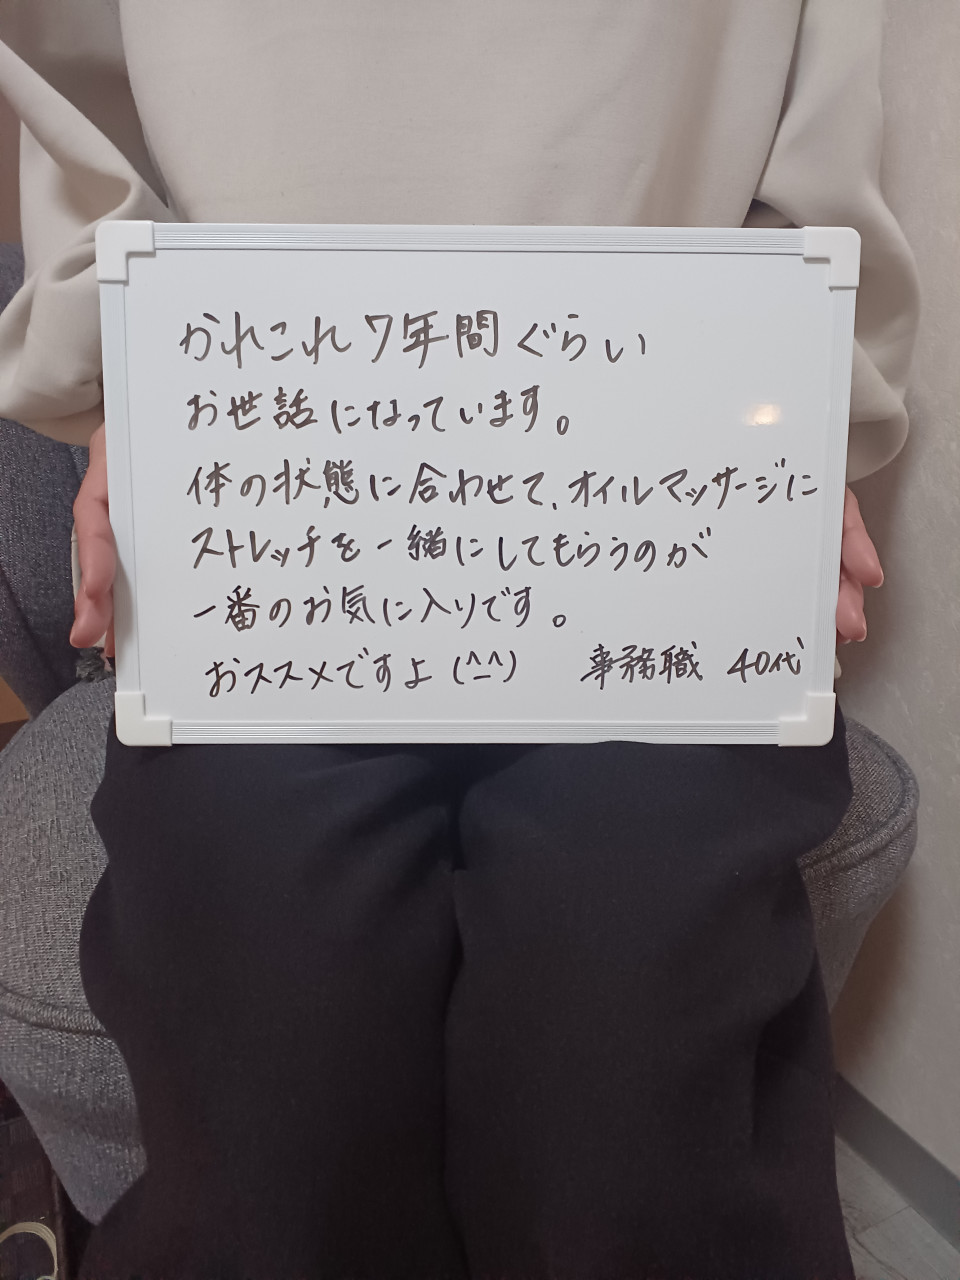 かれこれ7年間ぐらい
お世話になっています。
体の状態に合わせて、オイルマッサージに
ストレッチを一緒にしてもらうのが
一番のお気に入りです。
おススメですよ(^_^) 事務職 40代